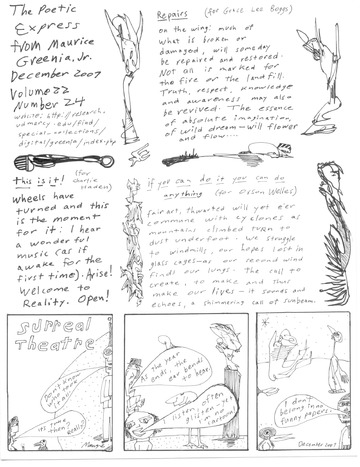 The Poetic
Express
from Maurice
Greenia, Jr.
December 2007
Volume 22
Number 24
website: http://research.
udmercy.edu/find/
special-collections/
digital/greenia/index.php
Repairs (for Grace Lee Boggs)
On the wing: much of
what is broken or
damaged, will someday
be repaired and restored.
Not all is marked for
the fire or the landfill.
Truth, respect, knowledge
and awareness may also
be revived. The essence
of absolute imagination,
of wild dream—will flower
and flow....
this is it! (for
Charlie
Haden)
wheels have
turned and this
is the moment
for it: I hear
a wonderful
music (as if
awake for the
first time). Arise!
Welcome to
Reality. Open!
if you can do it you can do
anything (for Orson Welles)
fair art, thwarted will yet e'er
commune with cyclones as
mountains climbed even to
dust underfoot. We struggle
to windmills, our hopes lost in
glass cages—as our second wind
finds our lungs. The call to
create, to make and thus
make our lives—it sounds and
echoes, a shimmering call of sunbeam.
Surreal
Theatre
Don't know
its time then
As the year
ends, the
ear bends
to hear
listen, often
glisten, yet
now
I don't
belong in no
funny papers
December 2007